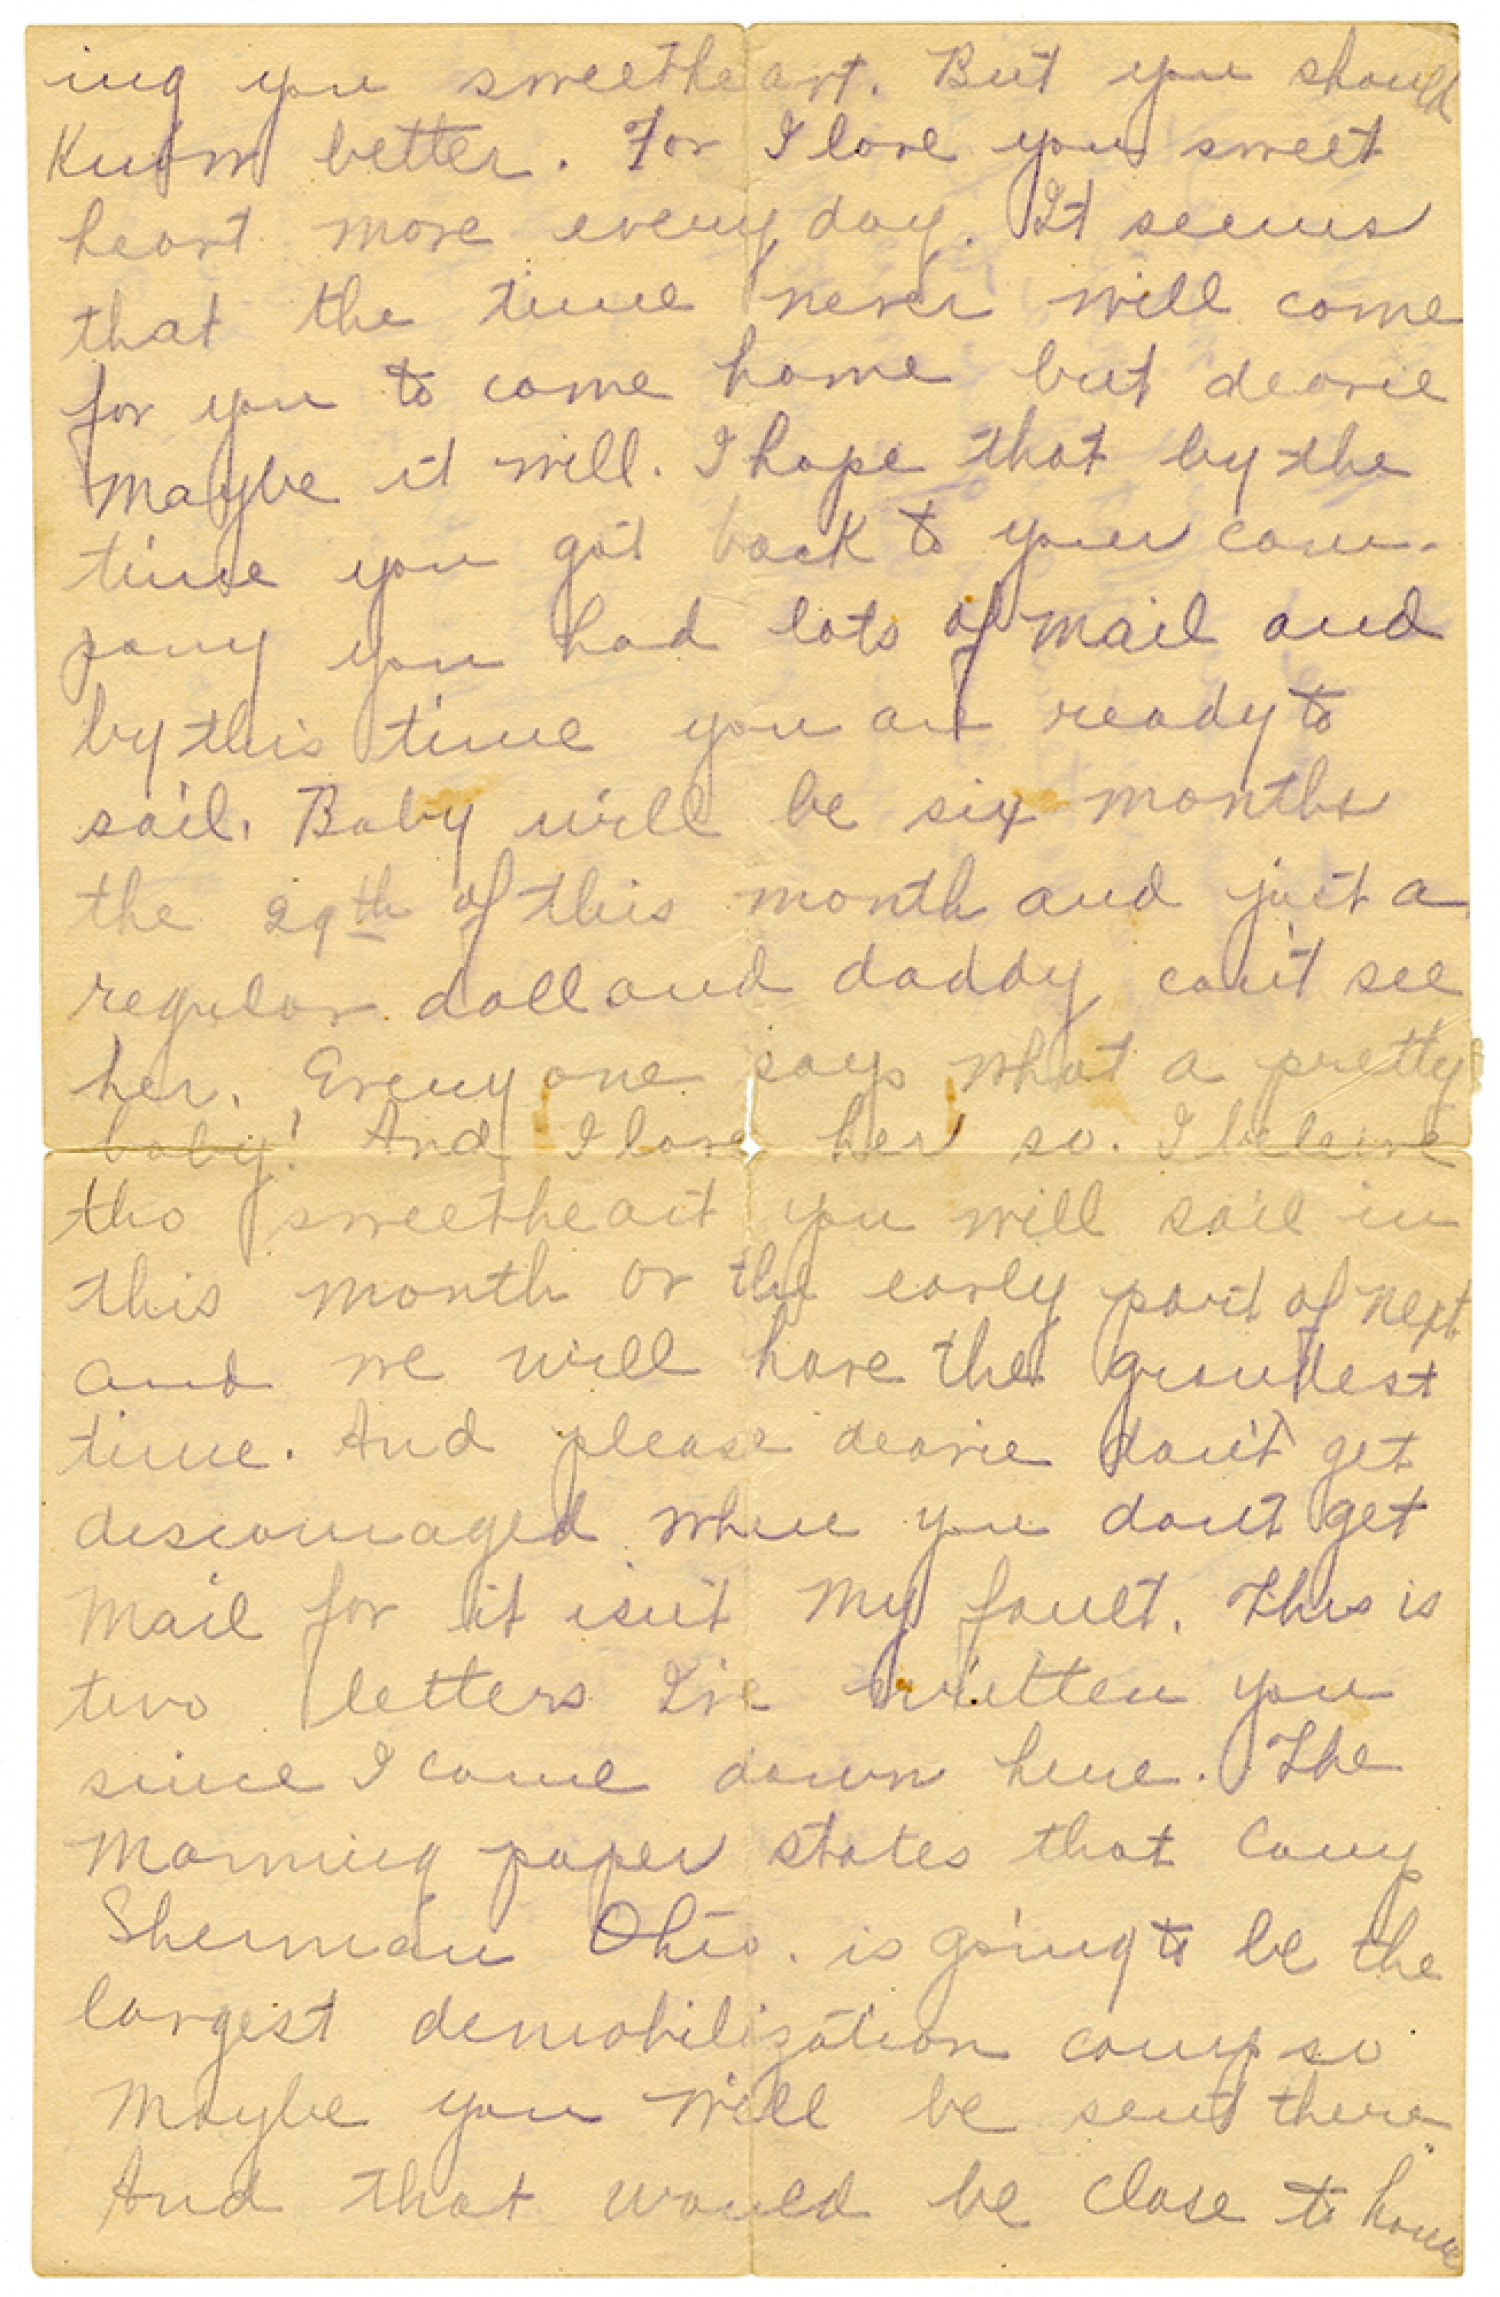 ing you sweetheart. But you should
Know better. For I love you sweet
heart more every day. It seems
that the time never will come
for you to come home but dearie
Maybe it will. I hope that by the
time you got back to your com-
pany you had lots of mail and
by this time you are ready to
sail. Baby will be six months
the 29th of this month and just a
regular doll and daddy can't see
her. Every one says what a pretty
baby! And I love her so. I beleive
tho sweetheart you will sail in
this month or the early part of next
and we will have the grandest
time. And please dearie don't get
discouraged when you don't get
Mail for it isn't my fault. This is
two letters I've written you
since I came down here. The
Morning paper states that Camp
Sherman Ohio. is going to be the
largest demobilization camp so
Maybe you will be sent there
And that would be close to home